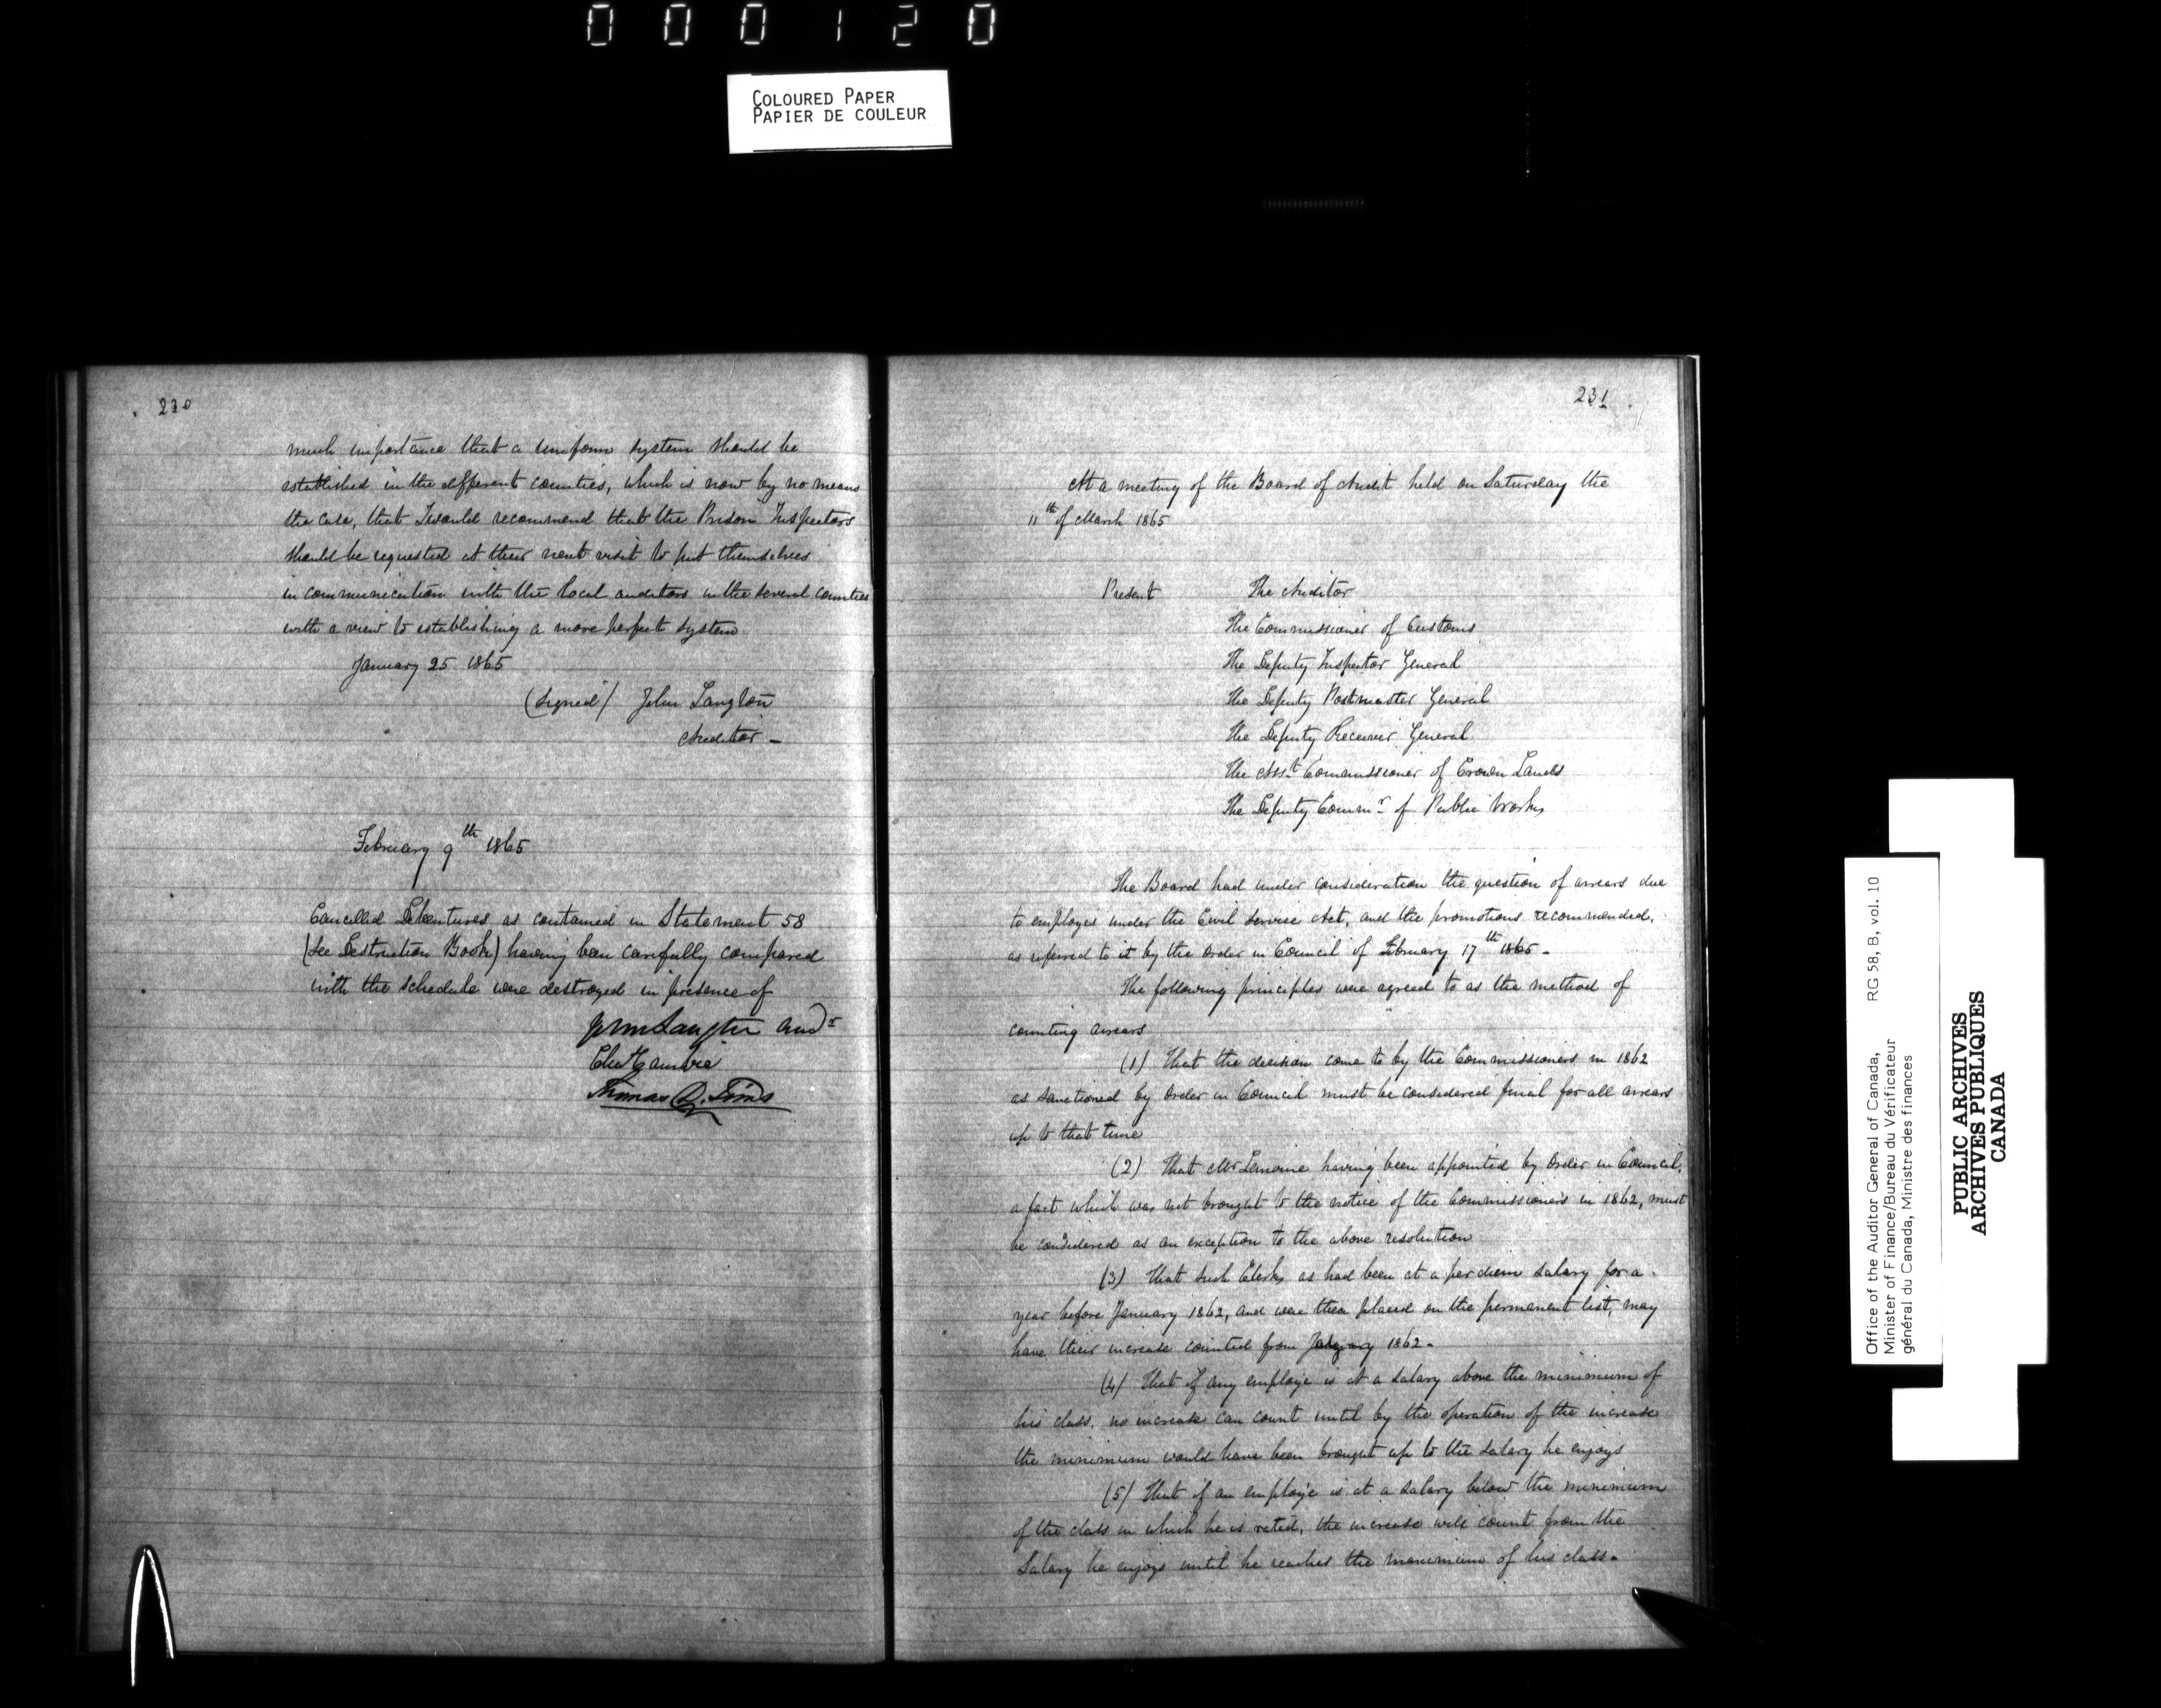 000120
COLOURED PAPER
PAPIER DE COULEUR
230
much importance that a uniform system should be
established in the different counties, which is now by no means
the case, that I would recommend that the Prison Inspectors
should be requested at their next visit to put themselves
in communication with the local auditors in the several counties
with a view to establishing a more perfect system
January 25 1865
(signed) John Langton
Auditor -
February 9th 1865
Cancelled Debentures as contained in Statement 58
(See Destruction Book) having been carefully compared
with the schedule were destroyed in presence of
John Langton Audr
Cambie
Thomas D. Tims
231
At a meeting of the Board of Audit held on Saturday the
11th of March 1865
Present The Auditor
The Commissioner of Customs
The Deputy Inspector General
The Deputy Postmaster General
The Deputy Receiver General
The Asst Commissioner of Crown Lands
The Deputy Commr of Public Works
The Board had under consideration the question of arrears due
to employés under the Civil Service Act, and the promotions recommended,
as referred to it by the Order in Council of February 17th 1865 -
The following principles were agreed to as the method of
counting arrears
(1) That the decision come to by the Commissioners in 1862
as sanctioned by Order in Council must be considered final for all arrears
up to that time
(2) That Mr Lemoine having been appointed by Order in Council,
a fact which was not brought to the notice of the Commissioners in 1862, must
be considered as an exception to the above resolution
(3) That such Clerks as had been at a per diem salary for a
year before January 1862, and were then placed on the permanent list, may
have their increase counted from 1862 -
(4) That if any employé is at a salary above the minimum of
his class, no increase can count until by the operation of the increase
the minimum would have been brought up to the salary he enjoys
(5) That if an employé is at a salary below the minimum
of the class in which he is rated, the increase will count from the
Salary he enjoys until he reaches the maximum of his class -
Office of the Auditor General of Canada, RG 58, B, vol. 10
Minister of Finance/Bureau du Vérificateur
général du Canada, Ministre des finances
PUBLIC ARCHIVES
ARCHIVES PUBLIQUES
CANADA